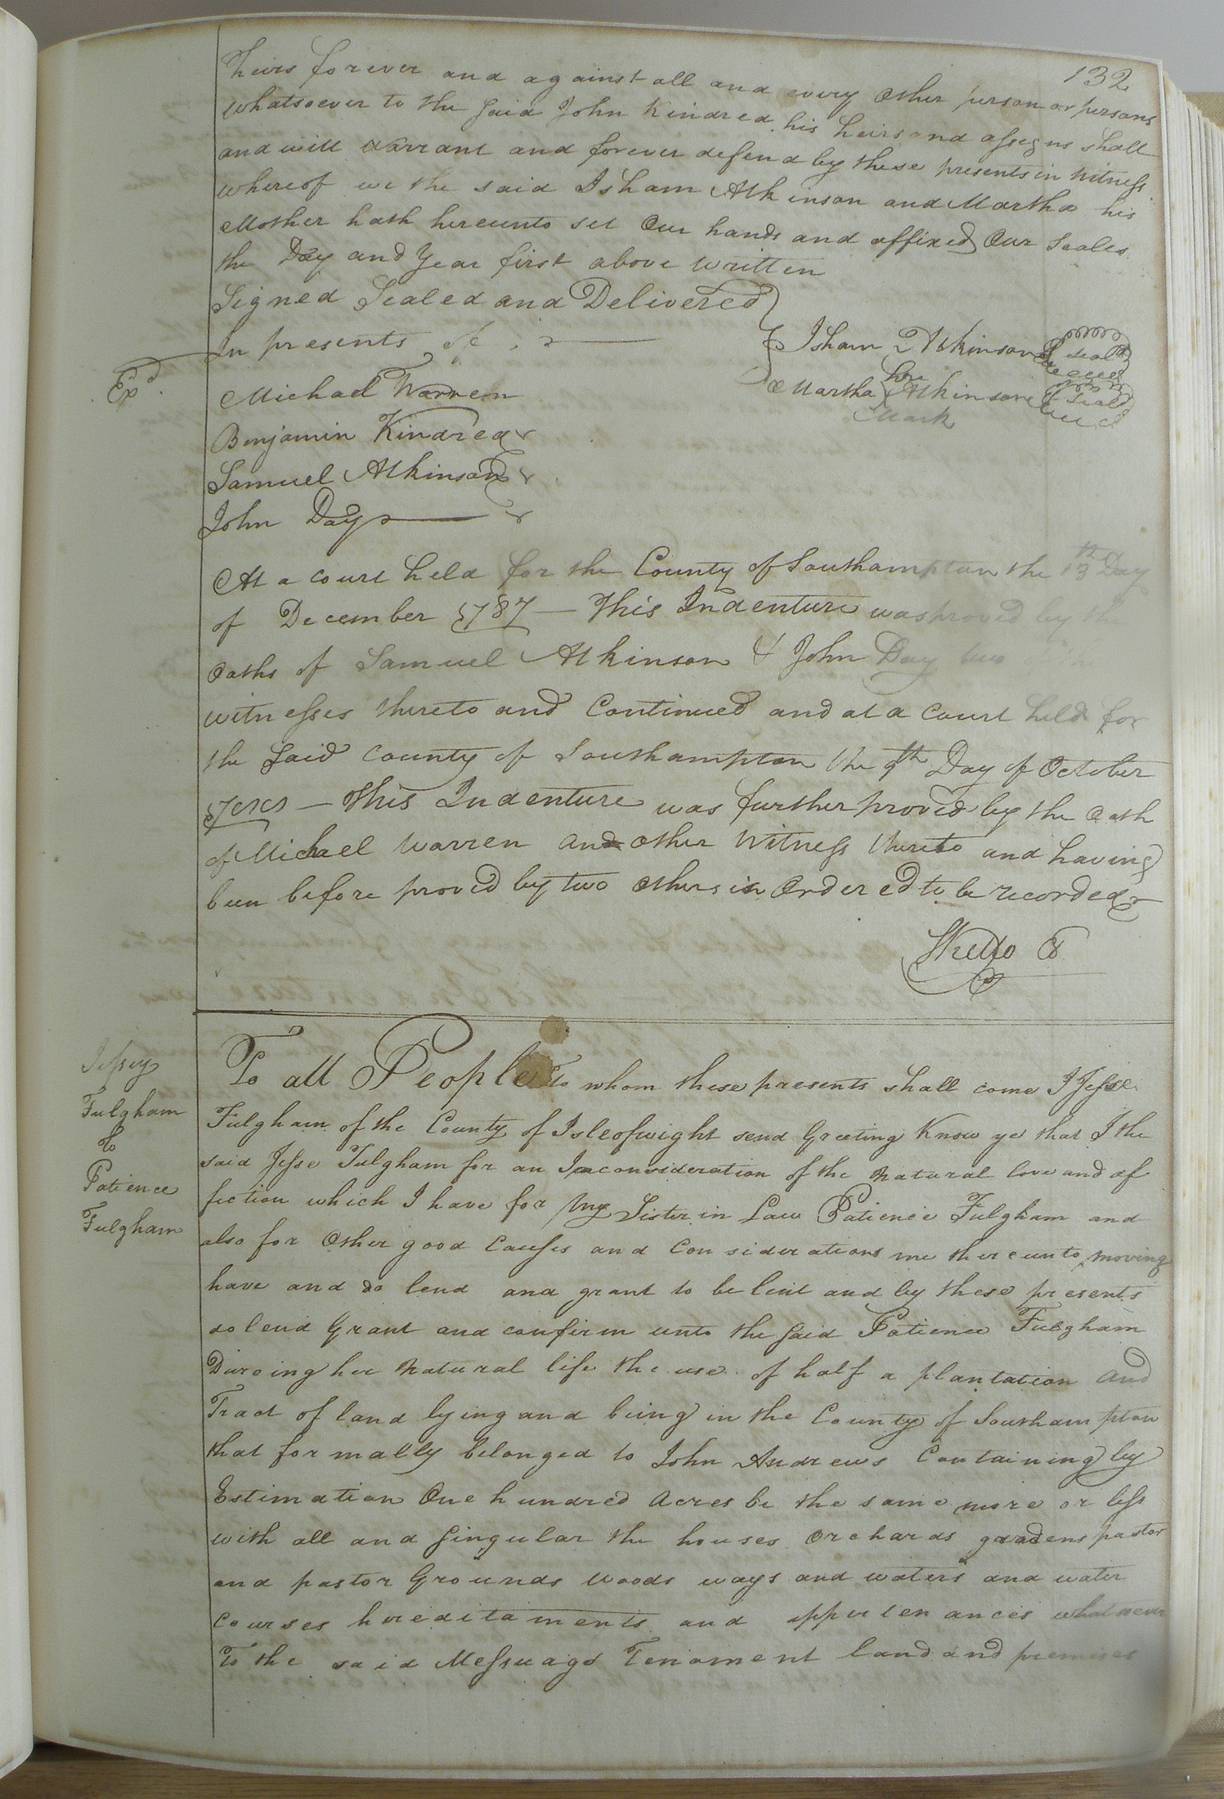 132
heirs forever and against all and every other person or persons
whatsoever to the said John Kindred his heirs and assigns shall
and will warrant and forever defend by these presents in witness
whereof we the said Isham Atkinson and Martha his
Mother hath hereunto set Our hands and affixed Our Seales
the Day and Year first above written
Signed Sealed and Delivered
In presents of
Isham Atkinson Seal
Exd
Martha her Atkinson Seal
Mark
Michael Warren
Benjamin Kindred
Samuel Atkinson
John Day
At a court held for the County of Southampton the 13th Day
of December 1787 — This Indenture was proved by the
oaths of Samuel Atkinson & John Day two
witnesses thereto and Continued and at a Court held for
the said County of Southampton the 9th Day of October
— This Indenture was further proved by the Oath
of Michael Warren another Witness thereto and having
been before proved by two others is Ordered to be recorded
Jessey
Fulgham
to
Patience
Fulgham
To all People To whom these presents shall come I Jesse
Fulgham of the County of Isleofwight send Greeting Know ye that I the
said Jesse Fulgham for an In consideration of the natural love and af
fection which I have for My Sister in Law Patience Fulgham and
also for Other good Causes and Considerations me thereunto moving
have and do lend and grant to be lent and by these presents
do lend Grant and confirm unto the said Patience Fulgham
Dureing her Natural life the use of half a plantation and
Tract of land lying and being in the County of Southampton
that formally belonged to John Andrews Containing by
Estimation One hundred Acres be the same more or less
with all and singular the houses Orchards gradens pastor
and pastor Grounds woods ways and waters and water
Courses hereditaments and appurtenances whatsoever
To the said Messuage Tenament land and premises